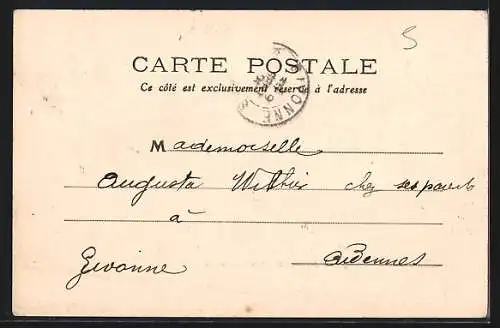 5
CARTE POSTALE
Ce côté est exclusivement réservé à l'adresse
Mademoiselle
Augusta chez ses parents
à
Givonne Ardennes